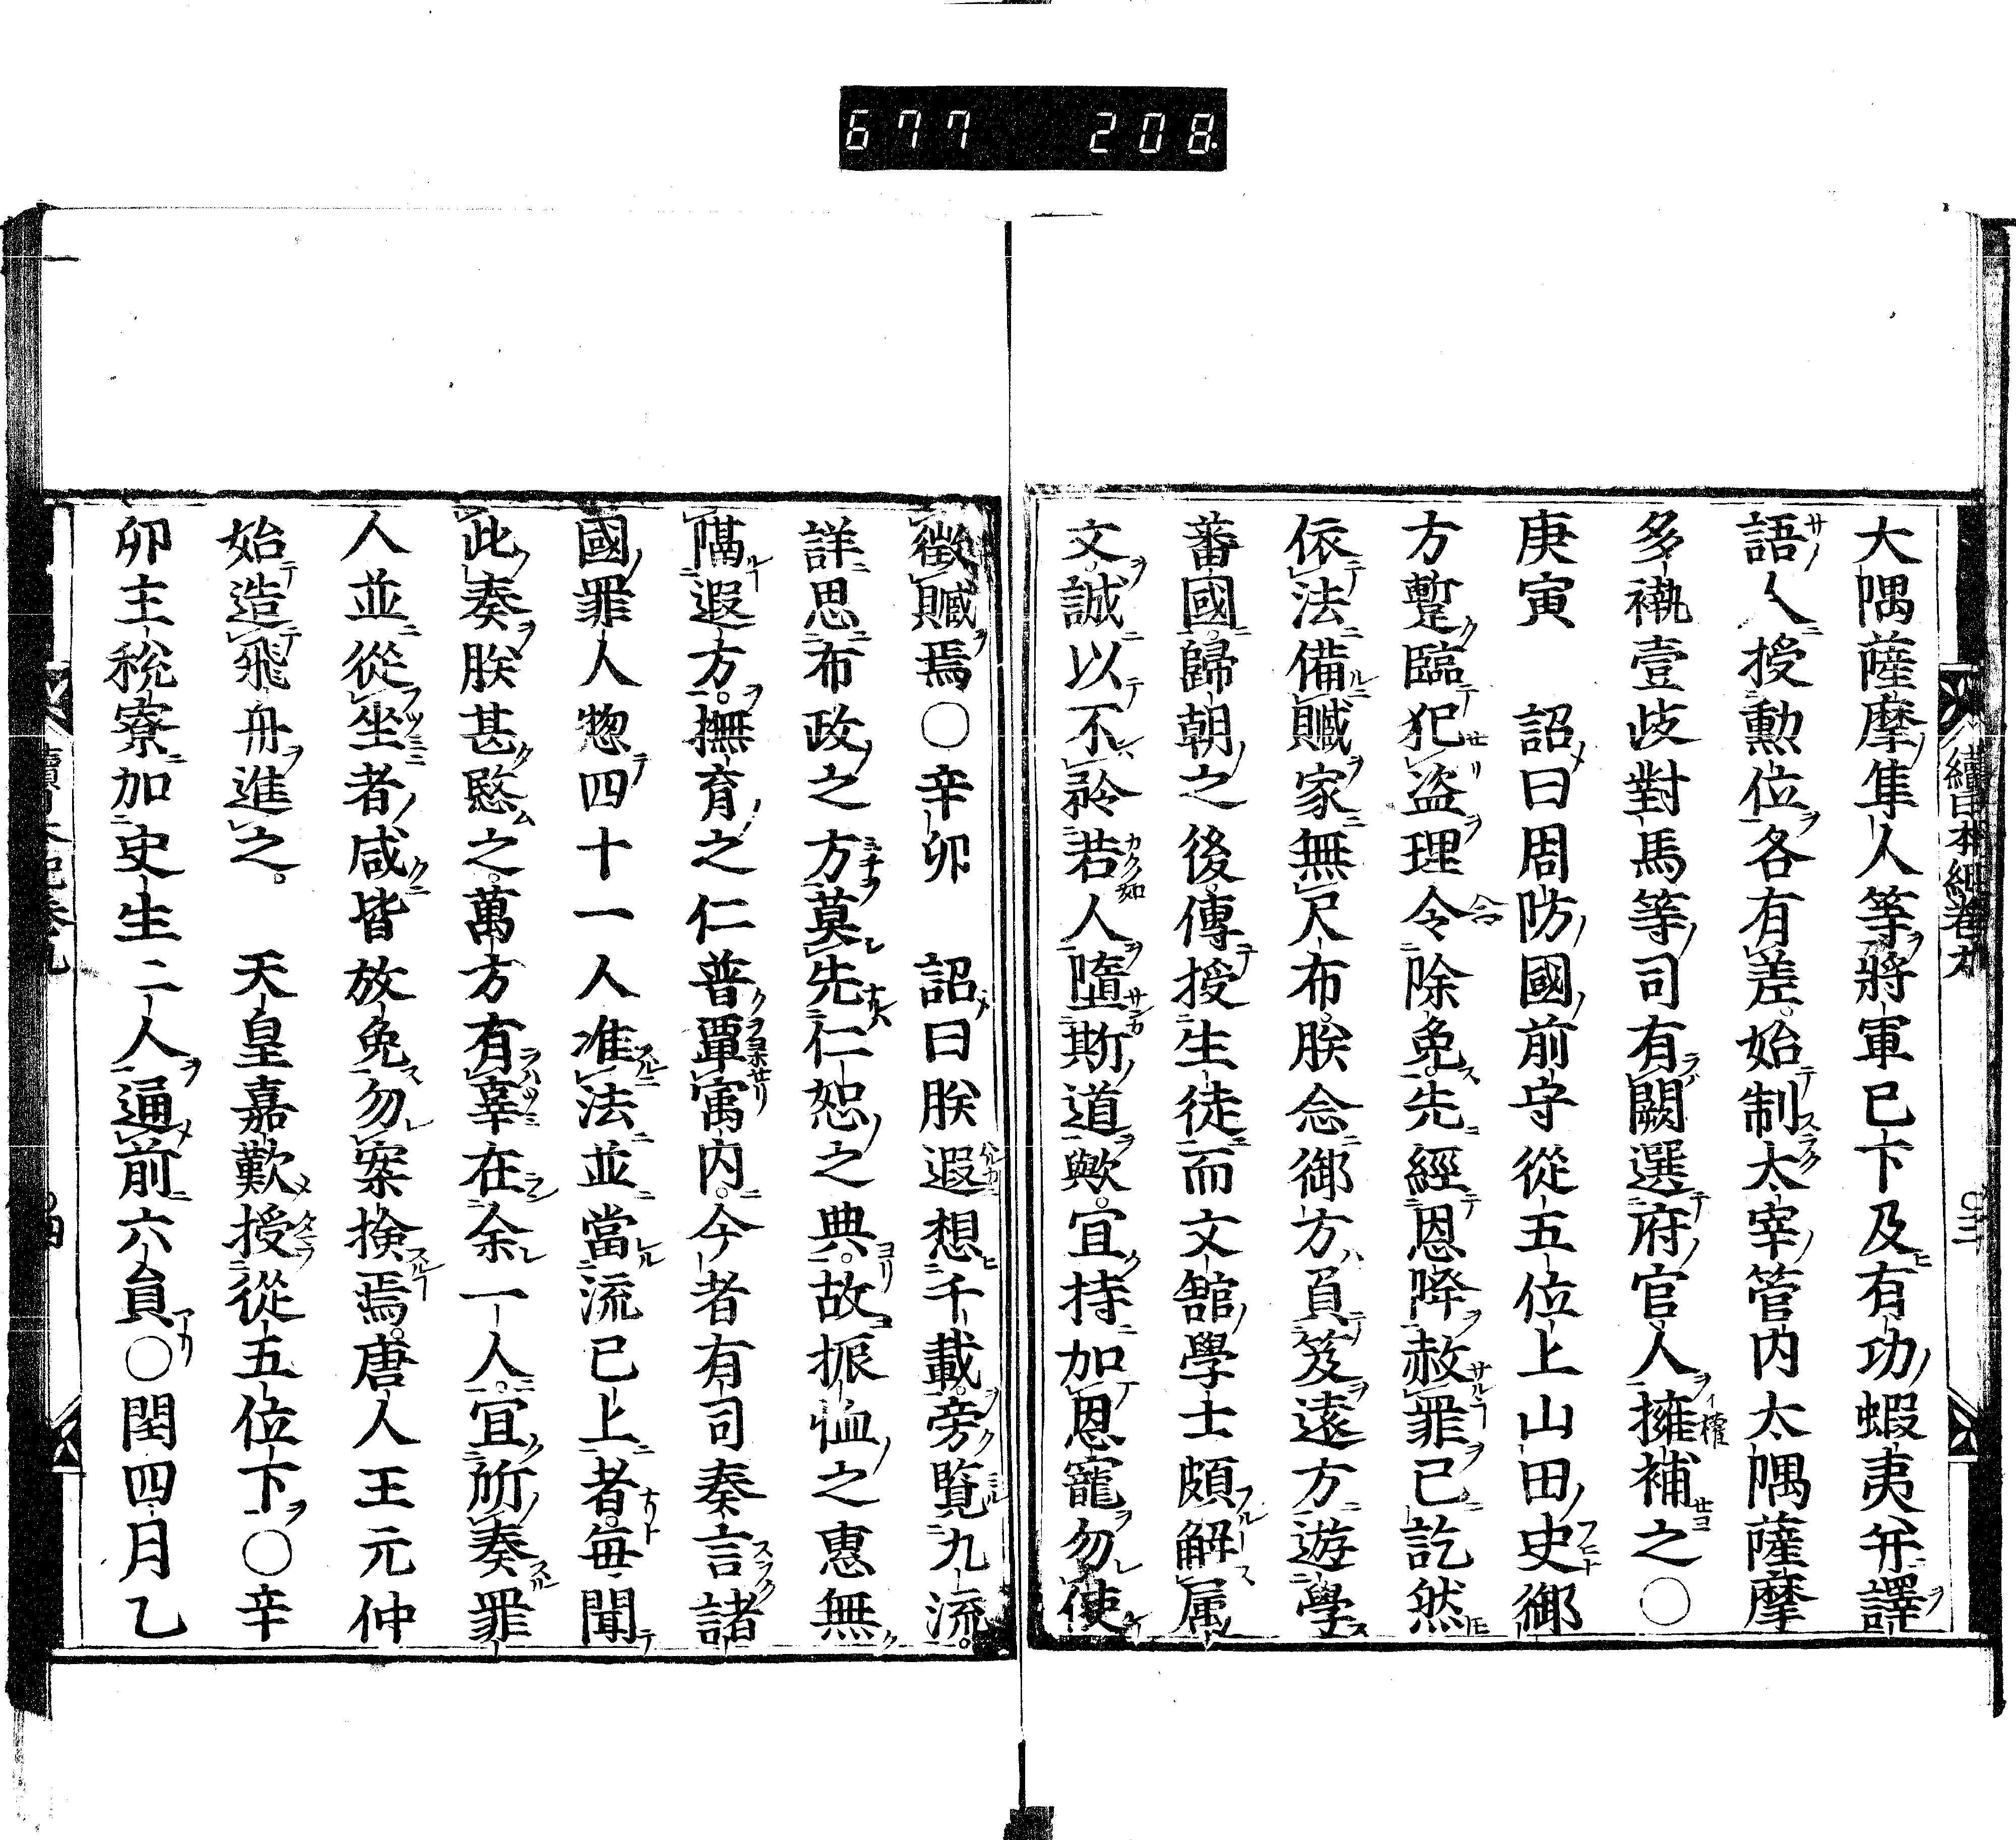 677 208
續日本紀卷九
大隅薩摩隼人等將軍已下及有功蝦夷并譯
語人授勳位各有差始制太宰管内太隅薩摩
多褹壹歧對馬等司有闕選府官人擁補之〇
庚寅 詔曰周防國前守從五位上山田史御
方蹔臨犯盗理令除免先經恩降赦罪已訖然
依法備贓家無尺布朕念御方負笈遠方遊學
蕃國歸朝之後傳授生徒而文舘學士頗解属
文誠以不矜若人墮斯道歟宜持加恩寵勿使
徵贓焉〇辛卯 詔曰朕遐想千載旁覧九流
詳思布政之方莫先仁恕之典故振恤之惠無
隔遐方撫育之仁普覃寓内今者有司奏言諸
國罪人惣四十一人准法並當流已上者毎聞
此奏朕甚愍之萬方有辜在余一人宜所奏罪
人並從坐者咸皆放免勿案撿焉唐人王元仲
始造飛舟進之 天皇嘉歎授從五位下〇辛
卯主税寮加史生二人通前六員〇閏四月乙